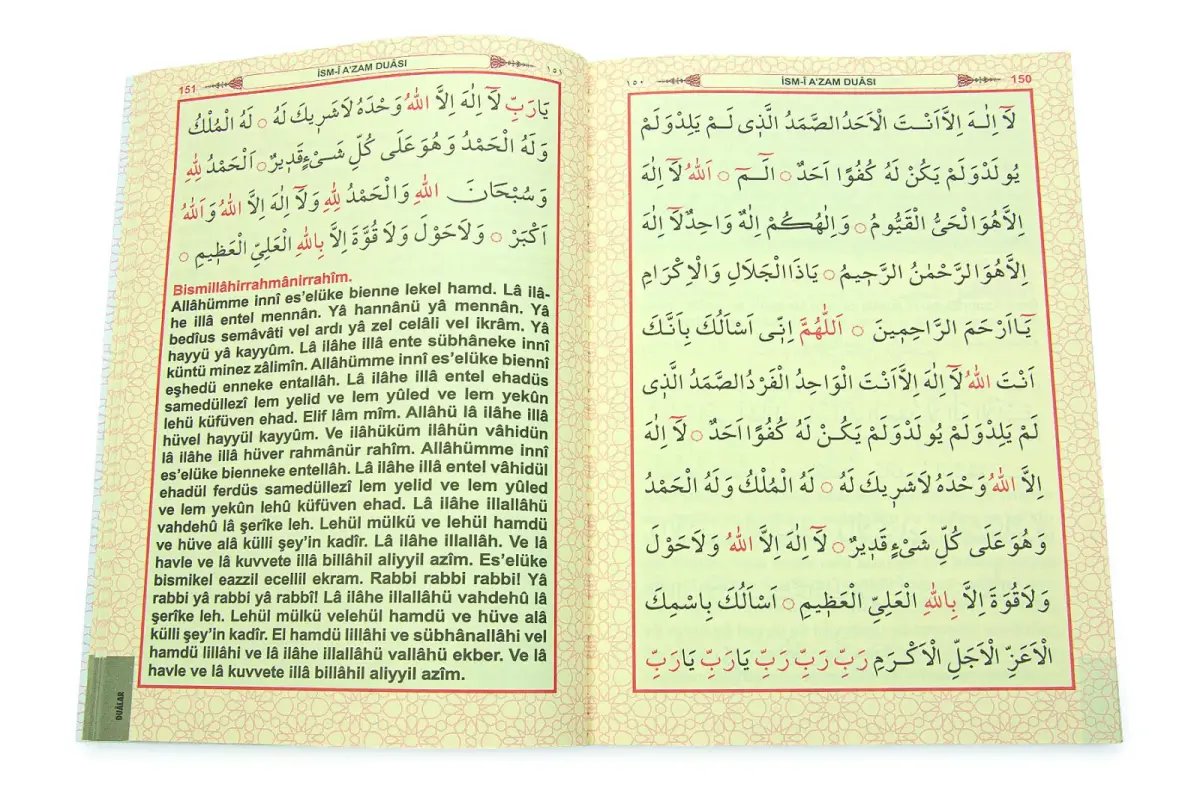 ١٥٠ İSM-İ A'ZAM DUÂSI 150
لَٓا اِلٰهَ اِلَّٓا اَنْتَ الْاَحَدُ الصَّمَدُ الَّذِى لَمْ يَلِدْ وَلَمْ
يُولَدْ وَلَمْ يَكُنْ لَهُ كُفُوًا اَحَدٌ ○ الٓمٓ ○ اَللّٰهُ لَٓا اِلٰهَ
اِلَّا هُوَ الْحَىُّ الْقَيُّومُ ○ وَاِلٰهُكُمْ اِلٰهٌ وَاحِدٌ لَٓا اِلٰهَ
اِلَّا هُوَ الرَّحْمٰنُ الرَّحِيمُ ○ يَاذَا الْجَلَالِ وَالْاِكْرَامِ
يَٓا اَرْحَمَ الرَّاحِمِينَ ○ اَللّٰهُمَّ اِنِّى اَسْاَلُكَ بِاَنَّكَ
اَنْتَ اللّٰهُ لَٓا اِلٰهَ اِلَّٓا اَنْتَ الْوَاحِدُ الْفَرْدُ الصَّمَدُ الَّذِى
لَمْ يَلِدْ وَلَمْ يُولَدْ وَلَمْ يَكُنْ لَهُ كُفُوًا اَحَدٌ ○ لَٓا اِلٰهَ
اِلَّا اللّٰهُ وَحْدَهُ لَا شَرِيكَ لَهُ ○ لَهُ الْمُلْكُ وَلَهُ الْحَمْدُ
وَهُوَ عَلَى كُلِّ شَىْءٍ قَدِيرٌ ○ لَٓا اِلٰهَ اِلَّا اللّٰهُ وَلَا حَوْلَ
وَلَا قُوَّةَ اِلَّا بِاللّٰهِ الْعَلِىِّ الْعَظِيمِ ○ اَسْاَلُكَ بِاسْمِكَ
الْاَعَزِّ الْاَجَلِّ الْاَكْرَمِ رَبِّ رَبِّ رَبِّ يَارَبِّ يَارَبِّ يَارَبِّ
151 İSM-İ A'ZAM DUÂSI ١٥١
يَارَبِّ لَٓا اِلٰهَ اِلَّا اللّٰهُ وَحْدَهُ لَا شَرِيكَ لَهُ ○ لَهُ الْمُلْكُ
وَلَهُ الْحَمْدُ وَهُوَ عَلَى كُلِّ شَىْءٍ قَدِيرٌ ○ اَلْحَمْدُ لِلّٰهِ
وَسُبْحَانَ اللّٰهِ وَالْحَمْدُ لِلّٰهِ وَلَٓا اِلٰهَ اِلَّا اللّٰهُ وَاللّٰهُ
اَكْبَرْ ○ وَلَا حَوْلَ وَلَا قُوَّةَ اِلَّا بِاللّٰهِ الْعَلِىِّ الْعَظِيمِ ○
Bismillâhirrahmânirrahîm.
Allâhümme innî es'elüke bienne lekel hamd. Lâ ilâ-
he illâ entel mennân. Yâ hannânü yâ mennân. Yâ
bedîus semâvâti vel ardı yâ zel celâli vel ikrâm. Yâ
hayyü yâ kayyûm. Lâ ilâhe illâ ente sübhâneke innî
küntü minez zâlimîn. Allâhümme innî es'elüke biennî
eşhedü enneke entallâh. Lâ ilâhe illâ entel ehadüs
samedüllezî lem yelid ve lem yûled ve lem yekûn
lehü küfüven ehad. Elif lâm mîm. Allâhü lâ ilâhe illâ
hüvel hayyül kayyûm. Ve ilâhüküm ilâhün vâhidün
lâ ilâhe illâ hüver rahmânür rahîm. Allâhümme innî
es'elüke bienneke entellâh. Lâ ilâhe illâ entel vâhidül
ehadül ferdüs samedüllezî lem yelid ve lem yûled
ve lem yekûn lehû küfüven ehad. Lâ ilâhe illallâhü
vahdehû lâ şerîke leh. Lehül mülkü ve lehül hamdü
ve hüve alâ külli şey'in kadîr. Lâ ilâhe illallah. Ve lâ
havle ve lâ kuvvete illâ billâhil aliyyil azîm. Es'elüke
bismikel eazzil ecellil ekram. Rabbi rabbi rabbi! Yâ
rabbi yâ rabbi yâ rabbî! Lâ ilâhe illallâhü vahdehû lâ
şerîke leh. Lehül mülkü velehül hamdü ve hüve alâ
külli şey'in kadîr. El hamdü lillâhi ve sübhânallâhi vel
hamdü lillâhi ve lâ ilâhe illallâhü vallâhü ekber. Ve lâ
havle ve lâ kuvvete illâ billâhil aliyyil azîm.
DUÂLAR